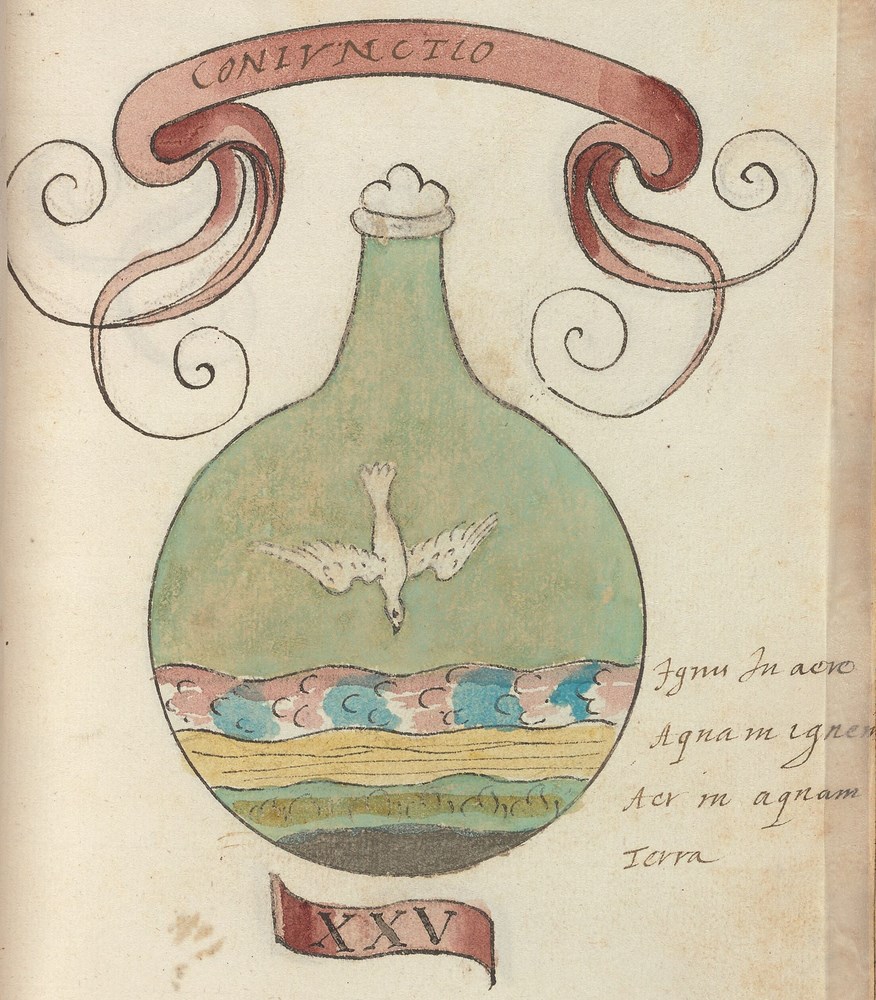 CONIVNCTIO
Ignis In aere
Aqua in ignem
Aer in aquam
Terra
XXV